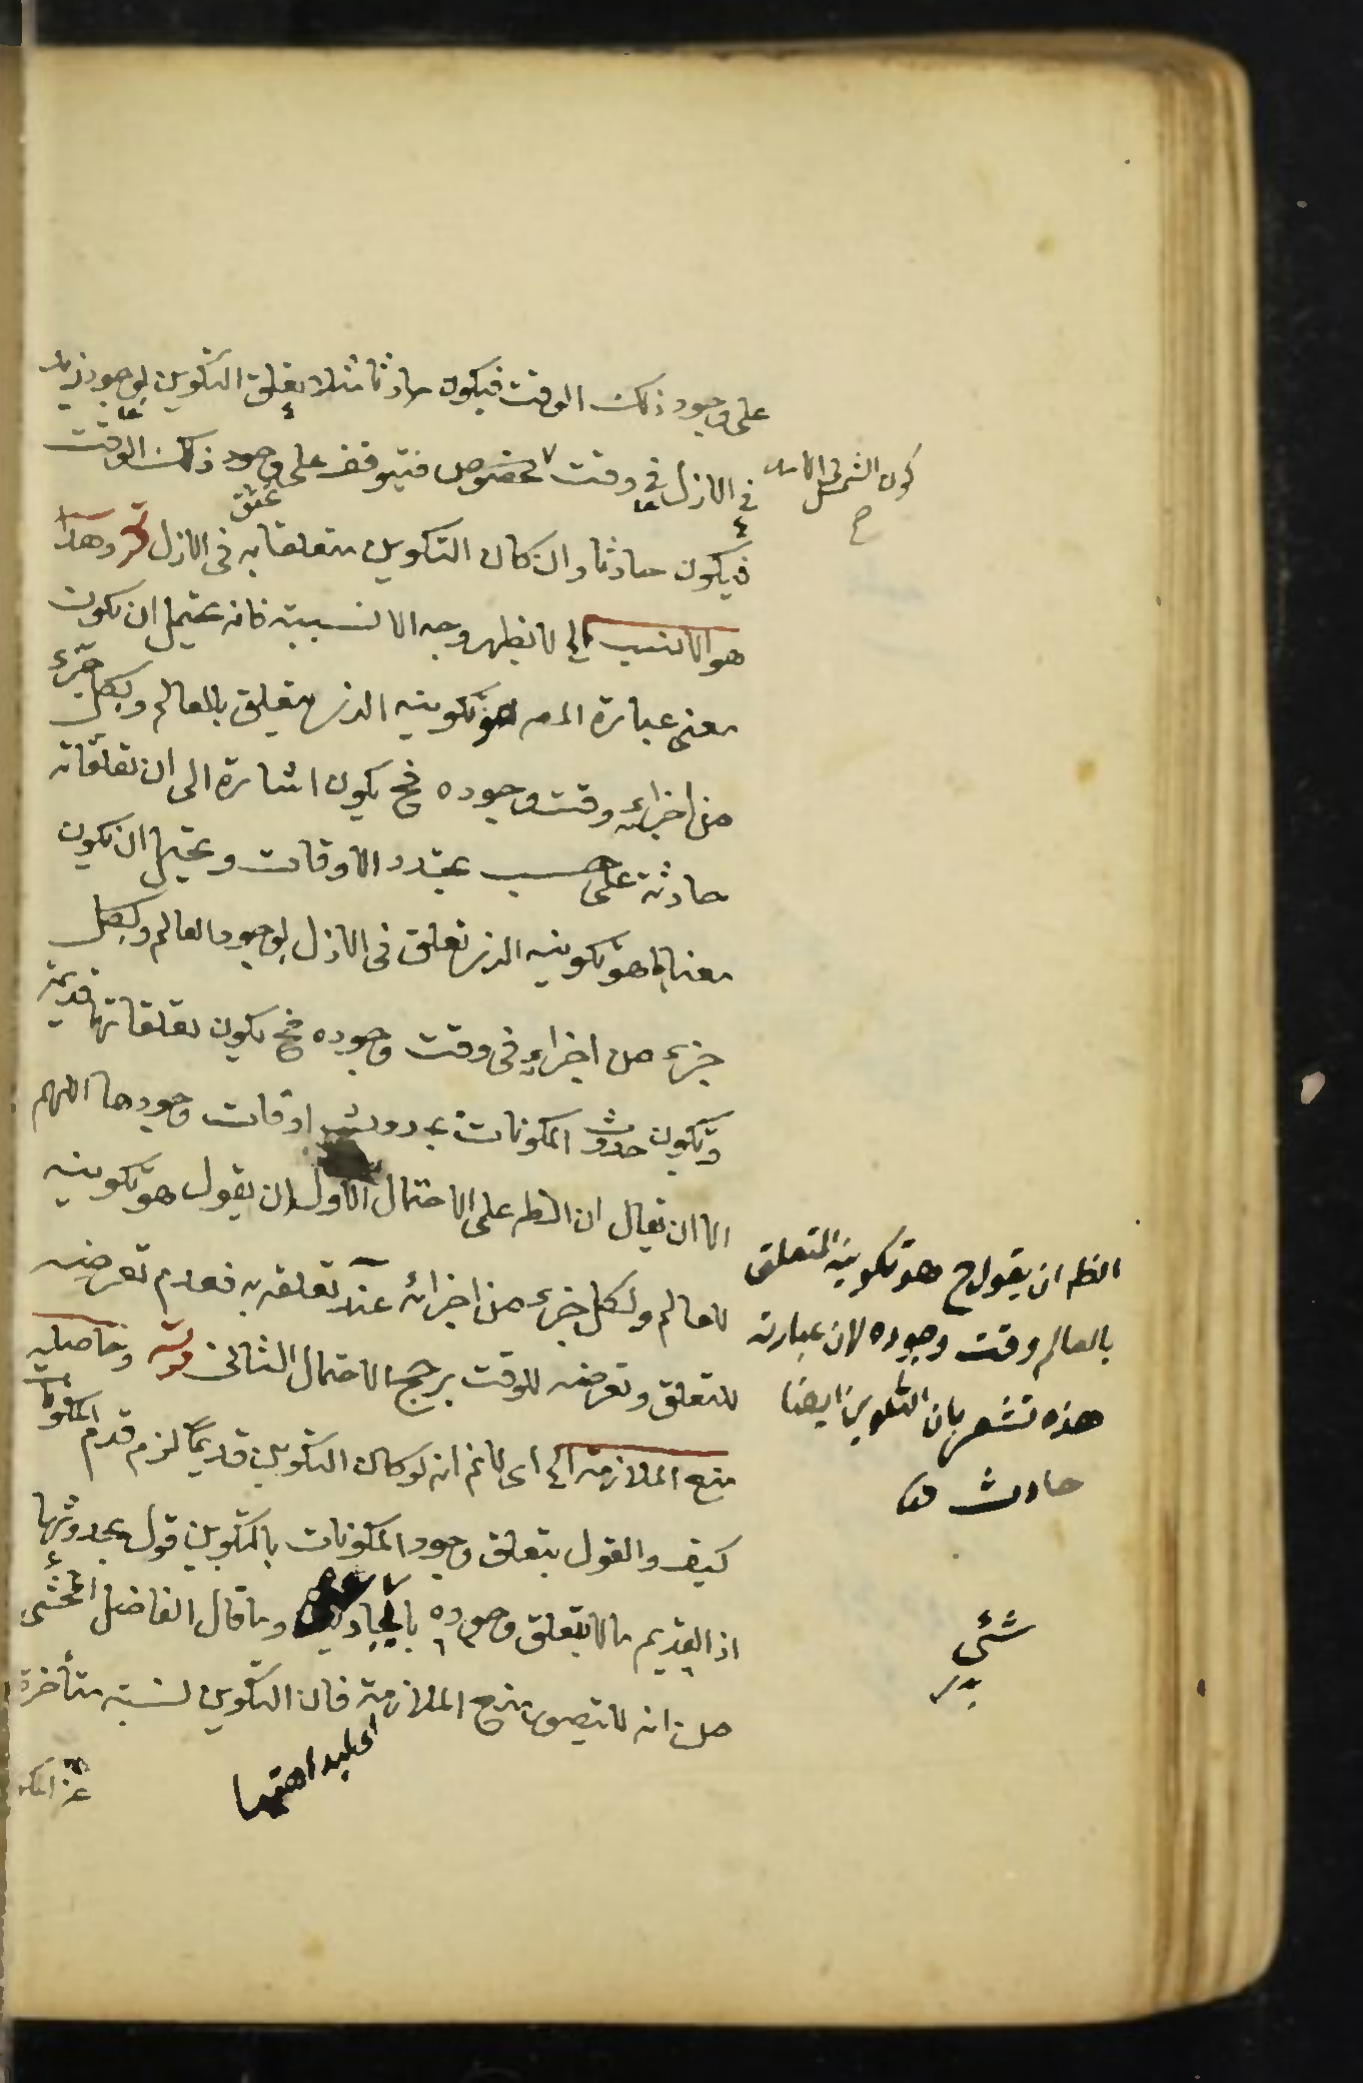 على وجود ذلك الوقت فيكون حادثا مثلا تعلق التكوين بوجود زيد
في الازل في وقت مخصوص فيتوقف على وجود ذلك الوقت
فيكون حادثا وان كان التكوين متعلقا به في الازل قوله وهذا
هو الانسب الخ لا يظهر وجه الانسبية فانه يحتمل ان يكون
معنى عبارة المصـ هو تكوينه الذي يتعلق بالعالم وبكل جزء
من اجزائه وقت وجوده فح يكون اشارة الى ان تعلقاته
حادثة على حسب تجدد الاوقات ويحتمل ان يكون
معناها هو تكوينه الذي تعلق في الازل بوجود العالم وبكل
جزء من اجزائه في وقت وجوده فح يكون تعلقاتها قديمة
وتكون حدوث المكونات بحدوث اوقات وجودها اللهم
الا ان يقال ان الظ على الاحتمال الاول ان يقول هو تكوينه
للعالم ولكل جزء من اجزائه عند تعلقه به فعدم تعرضه
للتعلق وتعرضه للوقت يرجح الاحتمال الثاني قوله وحاصله
منع الملازمة الخ اى لانم انه لو كان التكوين قديما لزم قدم المكونات
كيف والقول بتعلق وجود المكونات بالتكوين قول بحدوثها
اذ القديم ما لا يتعلق وجوده بايجاد وما قال الفاضل المحشى
من انه لا يتصور منع الملازمة فان التكوين نسبة متأخرة
الظ ان يقول ح هو تكوينه المتعلق
بالعالم وقت وجوده لان عبارته
هذه تشعر بان التكوين ايضا
حادث
شئ